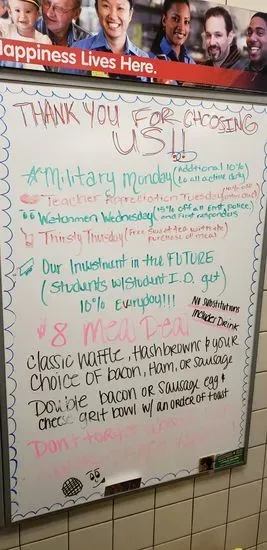 Happiness Lives Here.
THANK YOU FOR CHOOSING
US!!
*Military Monday (Additional 10%
to all active duty)
Teacher Appreciation Tuesday
Wetonmen Wednesday (15% off all EMT, Police,
and First responders
Thirsty Thursday (Free Sweet tea with the
purchase of meal
Our Investment in the FUTURE
(Students w/Student I.D. get)
10% Everyday!!!
No substitutions
Includes Drink
$8 Meal Deal
Classic waffle, Hashbrowns & your
Choice of bacon, Ham, or Sausage
Double bacon or Sausage egg &
cheese grit bowl w/ an order of toast
Don't forget